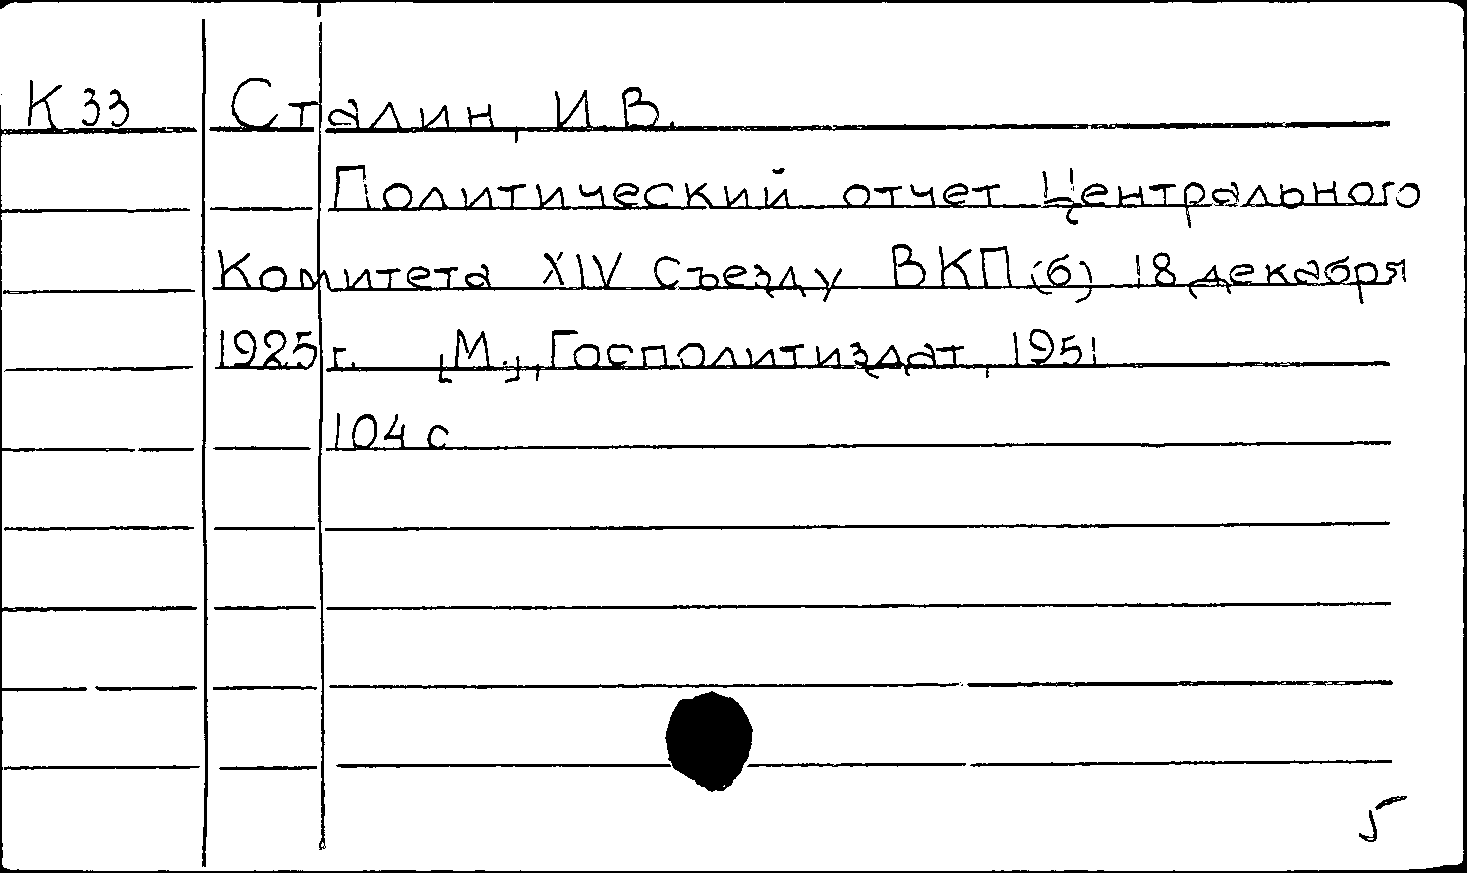 К 33 Сталин, И.В.
Политический отчет Центрального
Комитета XIV съезду ВКП(б) 18 декабря
1925 г. [М.], Госполитиздат, 1951
104 с
5